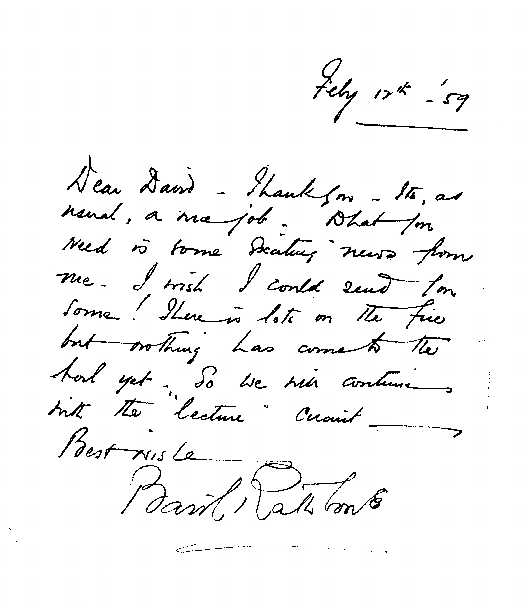 Feby 12th - '59
Dear David - Thank you - Its, as
usual, a nice job. What you
need is some "exciting" news from
me - I wish I could send you
some! There is lots on the fire
but nothing has come to the
boil yet - So we will continue
with the "lecture" circuit
Best wishes
Basil Rathbone